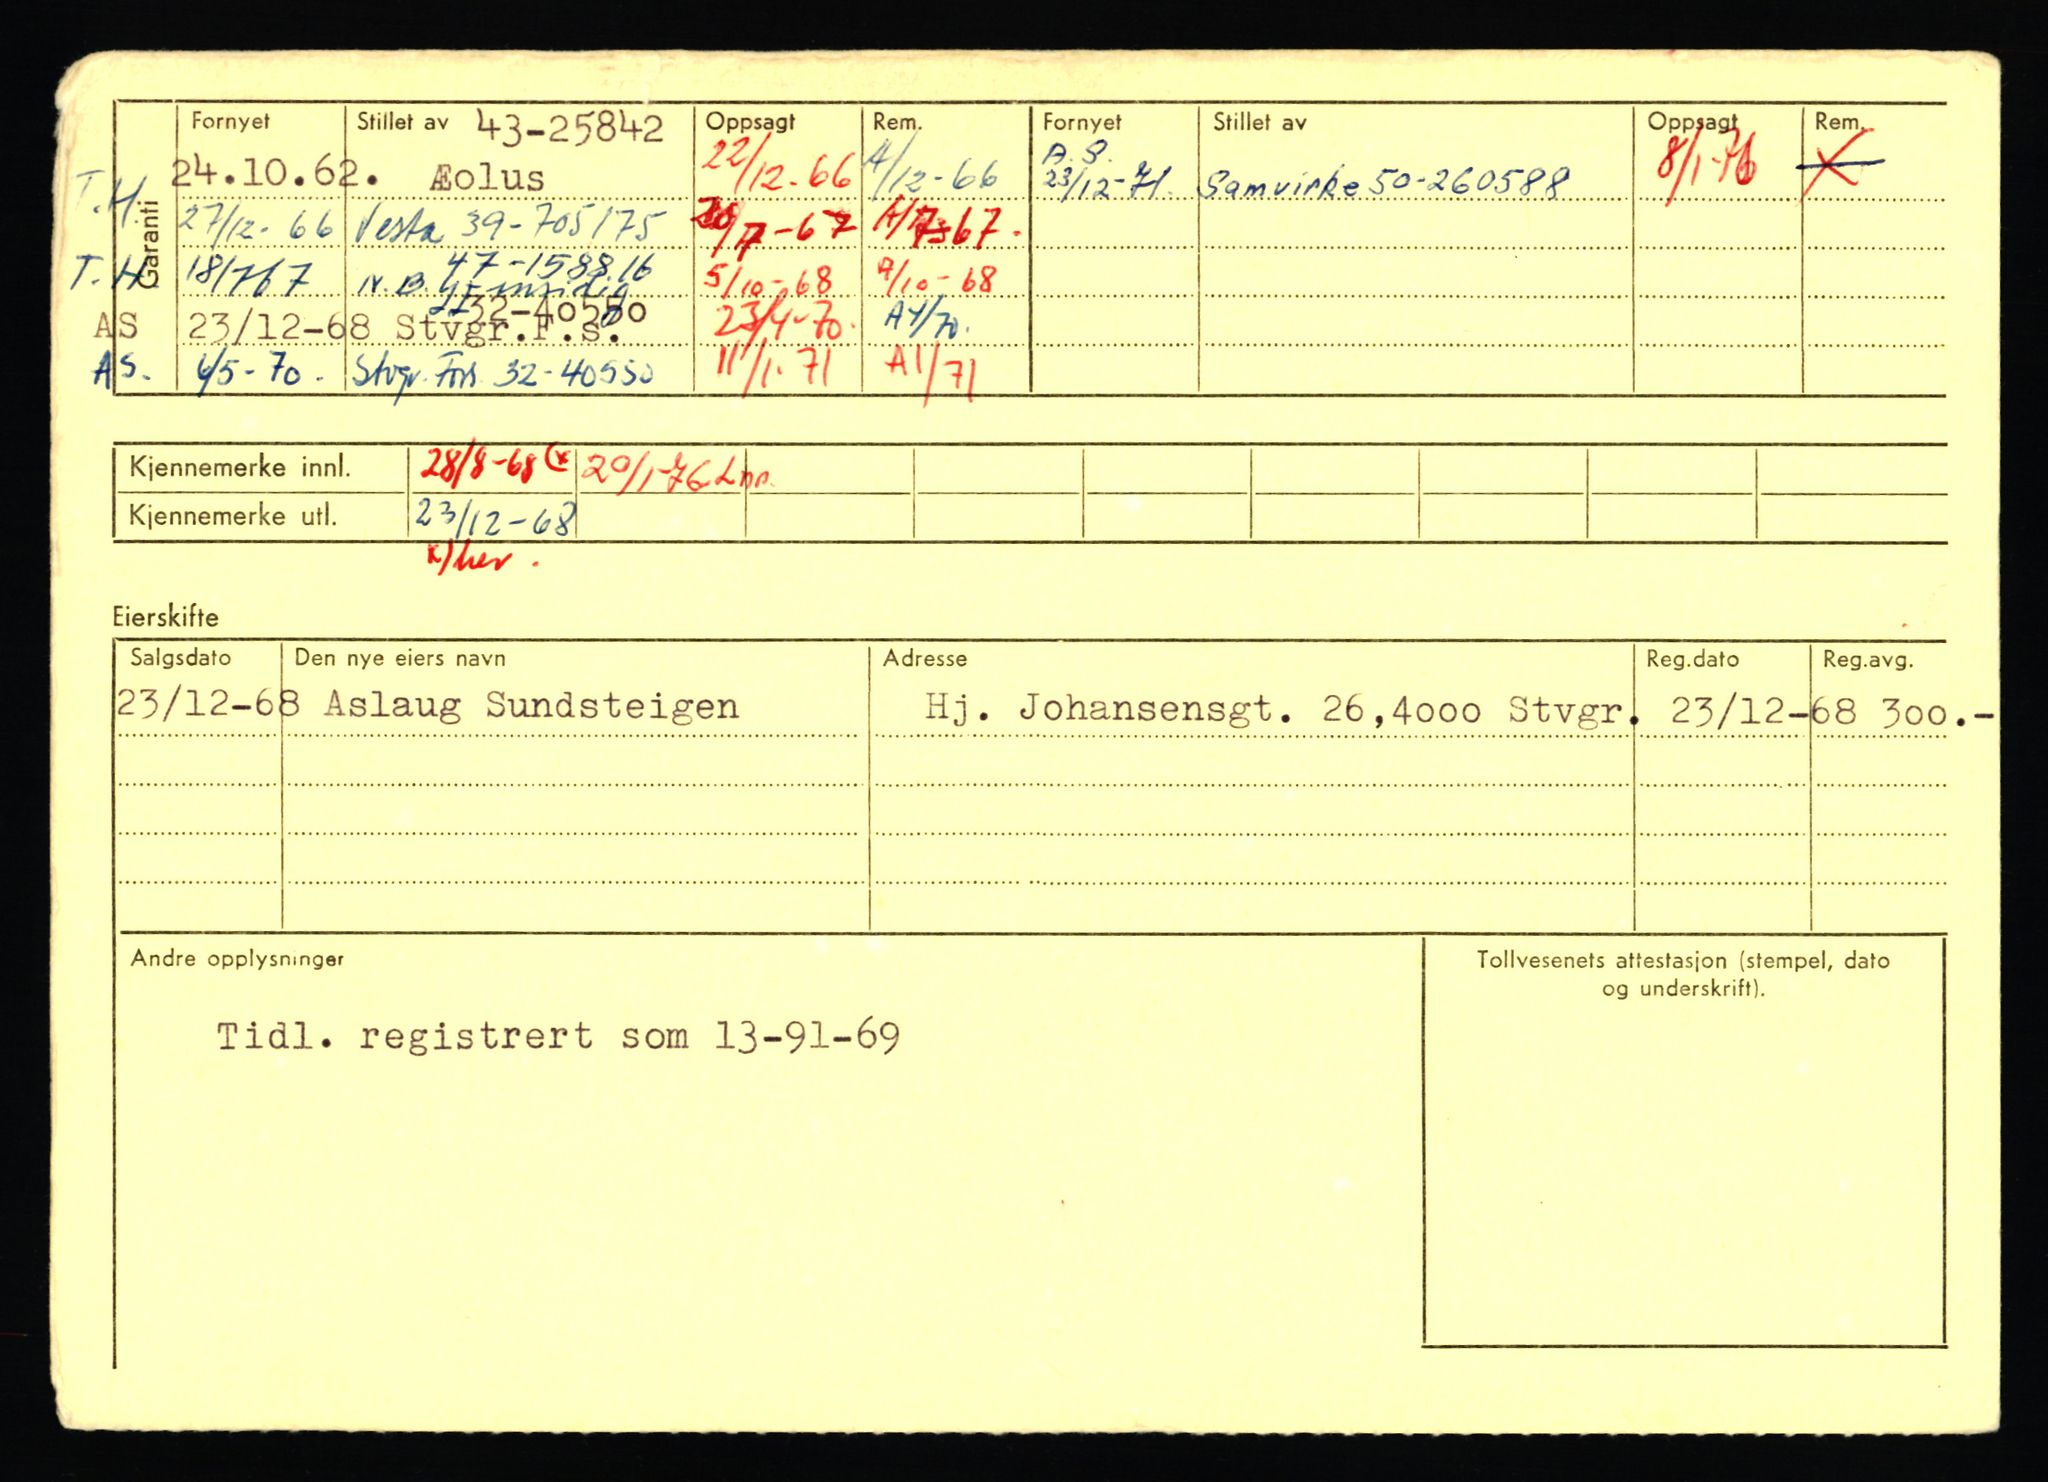 Garanti
Fornyet Stillet av 43-25842 Oppsagt Rem. Fornyet Stillet av Oppsagt Rem.
T.H. 24.10.62. Æolus 22/12-66 A/12-66 A.S. 23/12-71. Samvirke 50-260588 8/1-76 X
27/12-66 Vesta 39-705175 /7-67 A/7-67.
T.H. 18/7 67 N.B. 47-158816 5/10-68 A/10-68
32-40550
AS 23/12-68 Stvgr.F.s. 23/4-70. A4/70.
AS. 4/5-70. Stvgr. Fors. 32-40550 11/1-71 A1/71
Kjennemerke innl. 28/8-68 (x 20/1-76
Kjennemerke utl. 23/12-68
x) her.
Eierskifte
Salgsdato Den nye eiers navn Adresse Reg.dato Reg.avg.
23/12-68 Aslaug Sundsteigen Hj. Johansensgt. 26,4000 Stvgr. 23/12-68 300.-
Andre opplysninger
Tollvesenets attestasjon (stempel, dato
og underskrift).
Tidl. registrert som 13-91-69